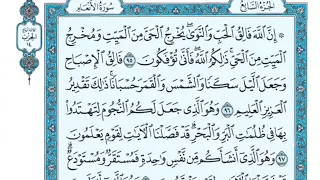 الجُزْءُ السَّابِعُ
سُورَةُ الأَنْعَامِ
۞ إِنَّ ٱللَّهَ فَالِقُ ٱلْحَبِّ وَٱلنَّوَىٰ ۖ يُخْرِجُ ٱلْحَىَّ مِنَ ٱلْمَيِّتِ وَمُخْرِجُ
ٱلْمَيِّتِ مِنَ ٱلْحَىِّ ۚ ذَٰلِكُمُ ٱللَّهُ ۖ فَأَنَّىٰ تُؤْفَكُونَ ٩٥ فَالِقُ ٱلْإِصْبَاحِ
وَجَعَلَ ٱلَّيْلَ سَكَنًا وَٱلشَّمْسَ وَٱلْقَمَرَ حُسْبَانًا ۚ ذَٰلِكَ تَقْدِيرُ
ٱلْعَزِيزِ ٱلْعَلِيمِ ٩٦ وَهُوَ ٱلَّذِى جَعَلَ لَكُمُ ٱلنُّجُومَ لِتَهْتَدُوا۟
بِهَا فِى ظُلُمَٰتِ ٱلْبَرِّ وَٱلْبَحْرِ ۗ قَدْ فَصَّلْنَا ٱلْءَايَٰتِ لِقَوْمٍ يَعْلَمُونَ
٩٧ وَهُوَ ٱلَّذِىٓ أَنشَأَكُم مِّن نَّفْسٍ وَٰحِدَةٍ فَمُسْتَقَرٌّ وَمُسْتَوْدَعٌ ۗ